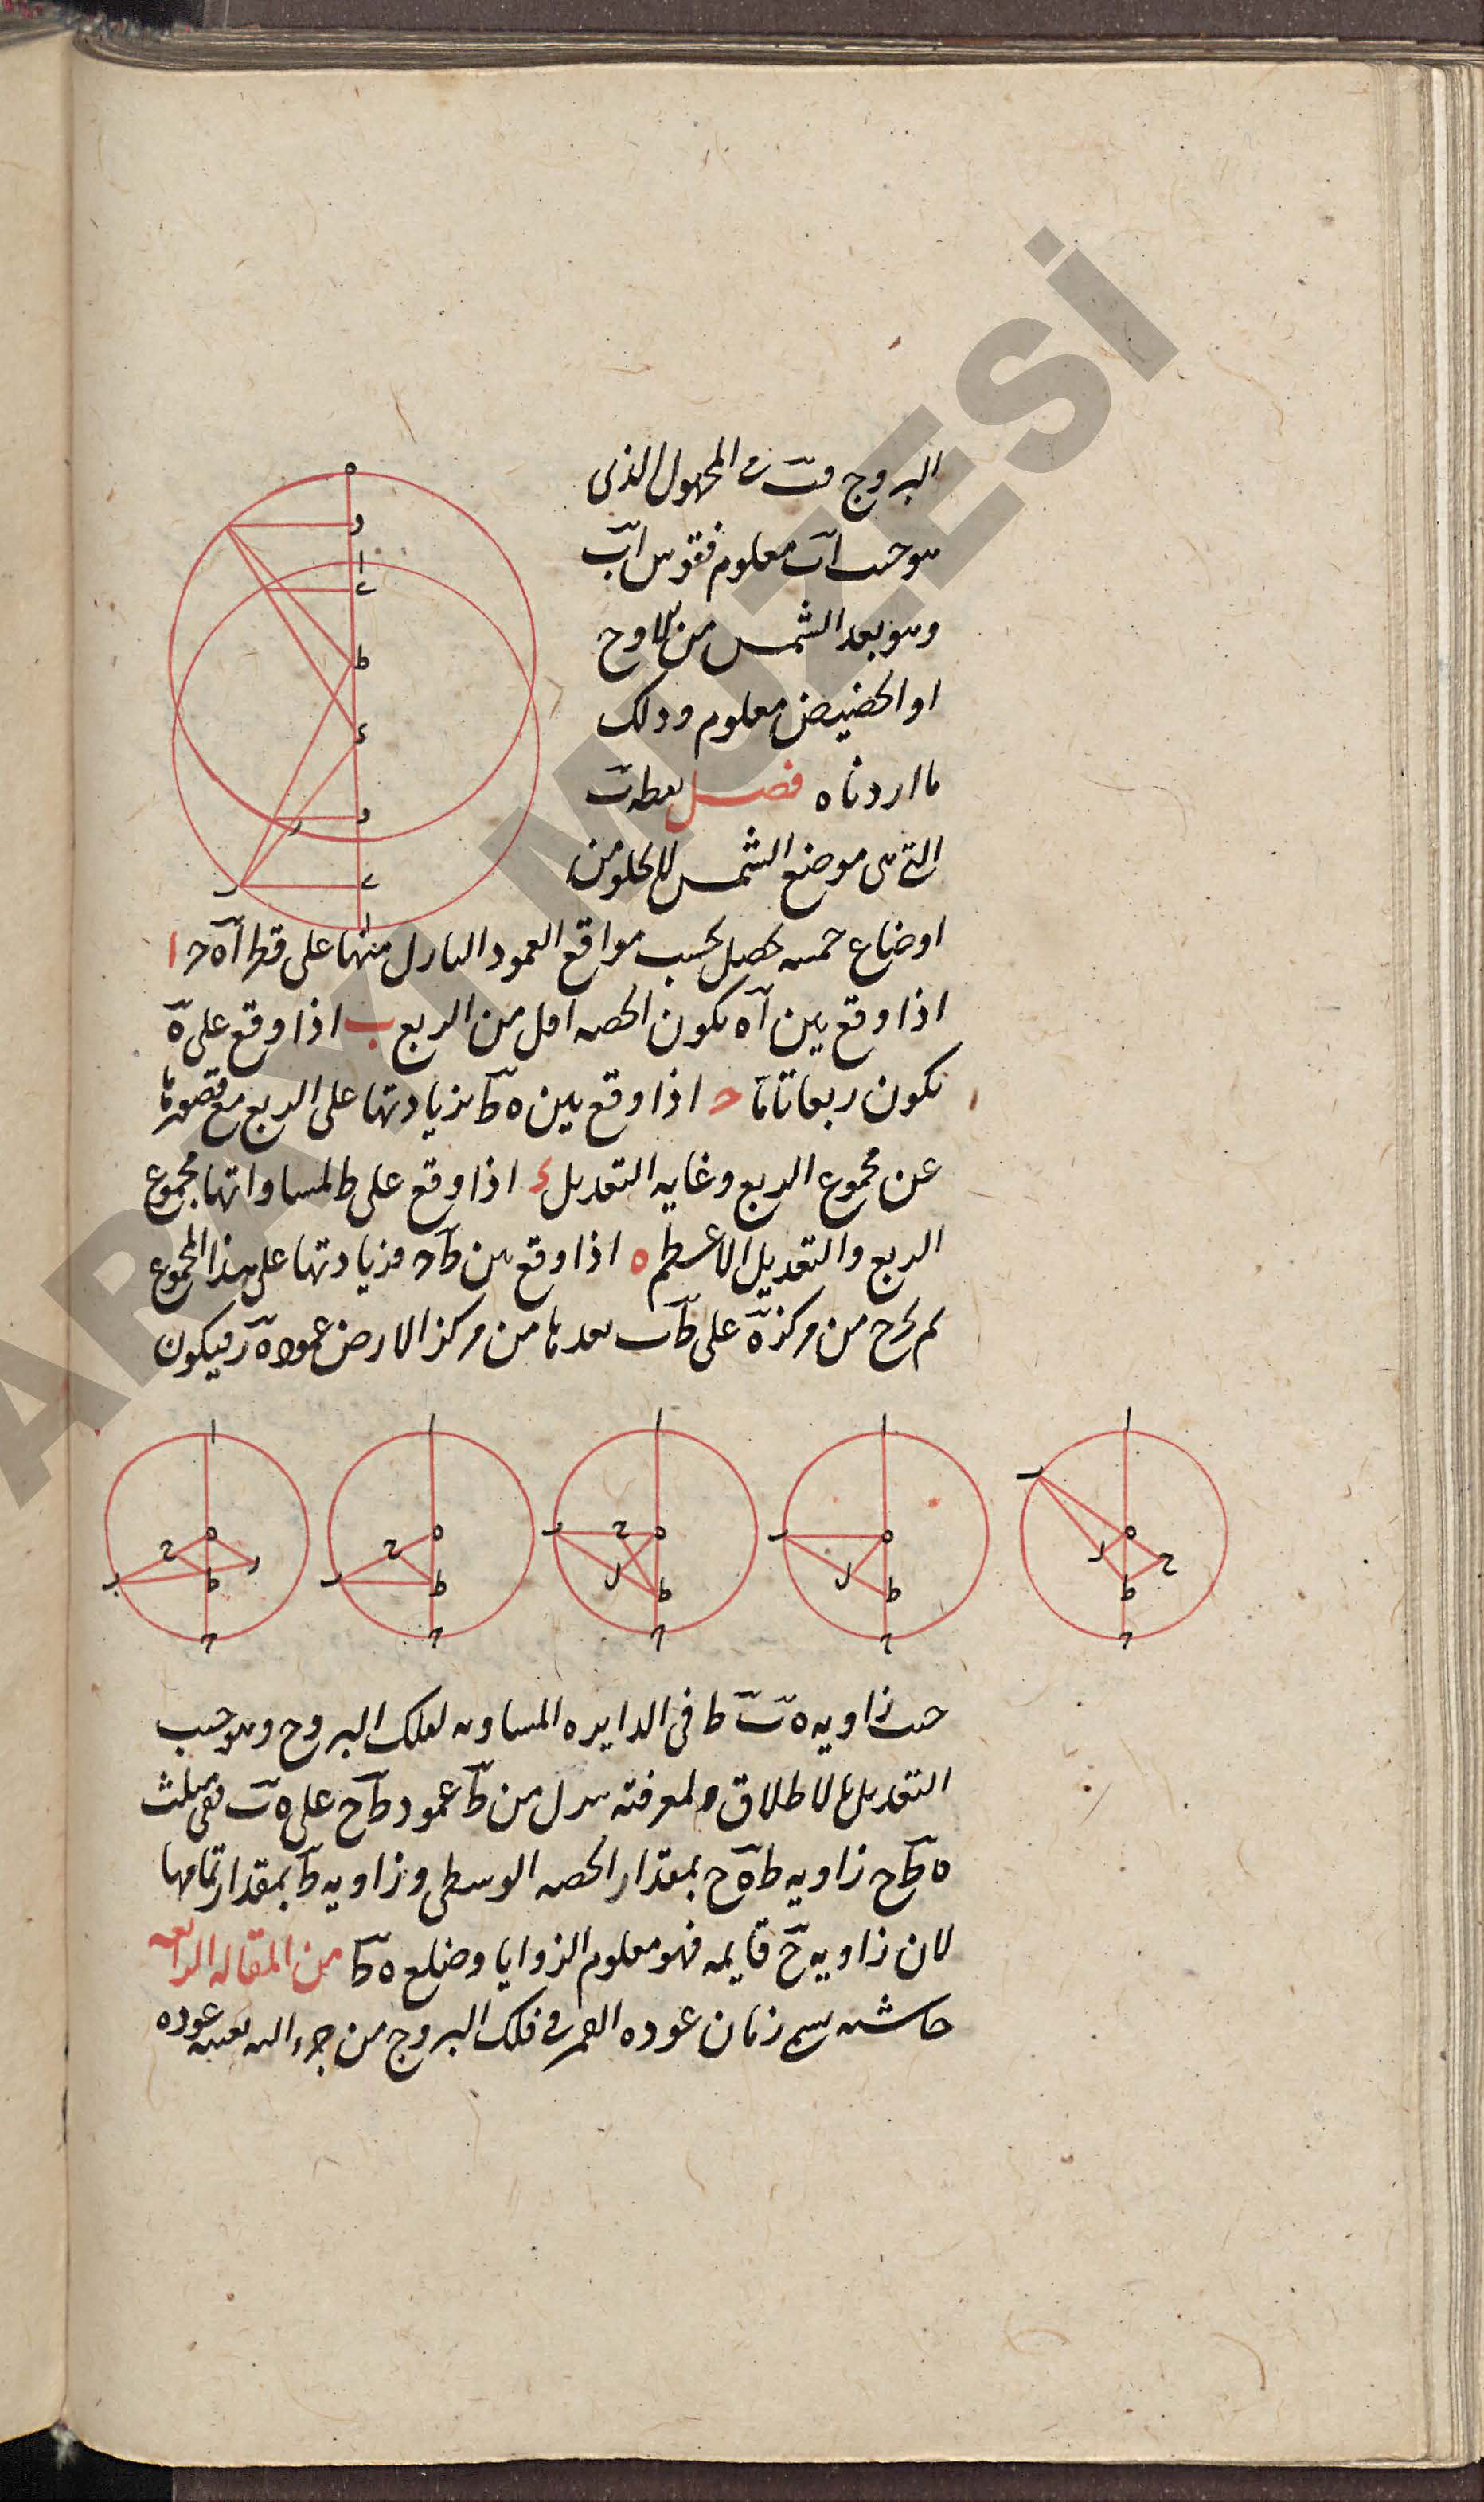 البروج مت ى المجهول الذى
هو جيب اب معلوم فقوس اب
وهو بعد الشمس من الاوج
او الحضيض معلوم وذلك
ما اردناه فصل نقطة ب
التى هى موضع الشمس لا يخلو من
اوضاع خمسة تحصل بحسب مواقع العمود النازل منها على قطر اه ح ا
اذا وقع بين اه يكون الحصه اقل من الربع ب اذا وقع على ه
يكون ربعا تاما ح اذا وقع بين ه ط بزيادتها على الربع مع قصورها
عن مجموع الربع وغايه التعديل د اذا وقع على ط لمساواتها مجموع
الربع والتعديل الاعظم ه اذا وقع بين ط ح فزيادتها على هذا المجموع
ثم نخرج من مركز ه على ط ب بعدها من مركز الارض عمود ه ز فيكون
جيب زاويه ه ب ط فى الدايره المساويه لفلك البروج وهو جيب
التعديل بالاطلاق ولمعرفته ننزل من ط عمود ط ح على ه ب ففى مثلث
ه ط ح زاويه ط ه ح بمقدار الحصه الوسطى وزاويه ط بمقدار تمامها
لان زاويه ح قايمه فهو معلوم الزوايا وضلع ه ط من المقاله الرابعه
حاشيه يسمى زمان عوده القمر فى فلك البروج من جزء اليه بعينه عوده
ARAY MÜZESİ